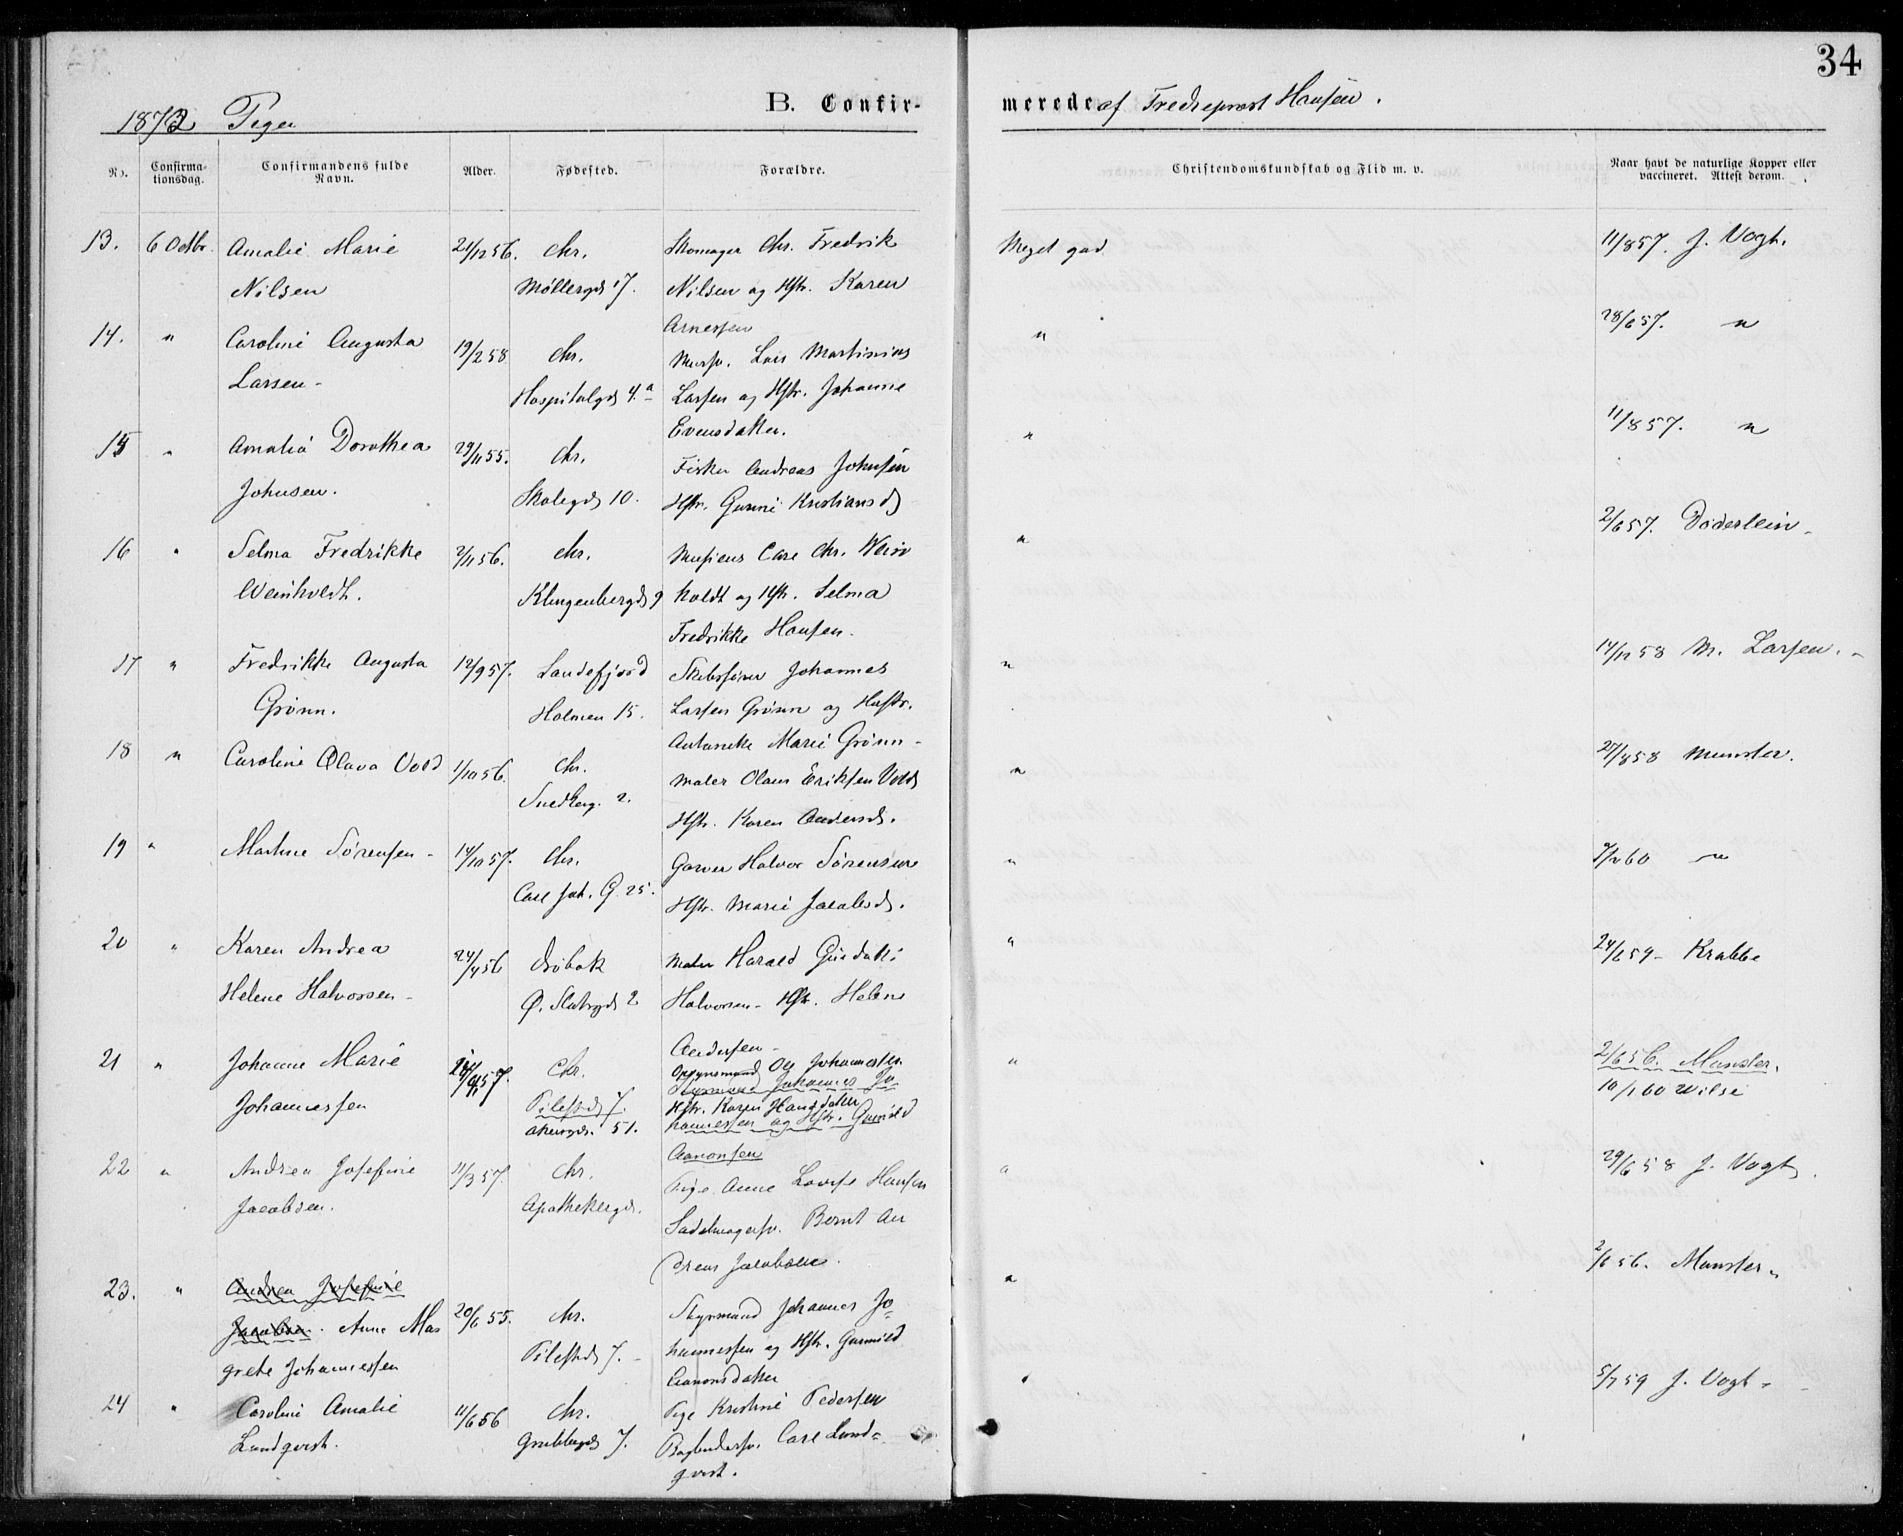 34
1872 Piger
B. Confir-
merede af Fredsprest Hansen.
No.
Confirma-
tionsdag.
Confirmandens fulde
Navn.
Alder.
Fødested.
Forældre.
Christendomskundskab og Flid m. v.
Naar havt de naturlige Kopper eller
vaccineret. Attest derom.
13. 6 Octbr. Amalie Marie 21/12 56. Chr. Skomager Chr. Fredrik Meget god 11/8 57. J. Vogt.
Nilsen Møllergd 17. Nilsen og Hstr. Karen
Arnessen
14. " Caroline Augusta 19/2 58 Chr. Mursv. Lars Martinius " 28/6 57. "
Larsen - Hospitalgd 4.a Larsen og Hstr. Johanne
Evensdatter.
15 " Amalia Dorothea 29/11 55. Chr. Fisker Andreas Johnsen " 11/8 57. "
Johnsen. Skolegd 10. Hstr. Gunni Kristiansd
16 " Selma Fredrikke 2/11 56. Chr. Musicus Carl Chr. Wein " 2/6 57. Døderlein -
Weinholdt. Klingenbergd 9 holdt og Hstr. Selma
Fredrikke Hansen.
17 " Fredrikke Augusta 12/9 57. Sandefjord Skibsfører Johannes " 14/12 58 M. Larsen. -
Grønn. Holmen 15. Larsen Grønn og Hustr.
Antonette Marie Grønn -
18 " Caroline Olava Vold 1/10 56. Chr. Maler Olaus Eriksen Vold " 27/8 58 Munster.
Snedkerg. 2. Hstr. Karen Andersd.
19 " Martine Sørensen - 14/10 57. Chr. Garver Halvor Sørensen " 9/2 60 "
Carl Joh. G. 25. Hstr. Marie Jacobsd.
20 " Karen Andrea 24/4 56 Drøbak Maler Harald " 24/6 59 - Krabbe
Helene Halvorsen - Ø. Slotsgd 2 Halvorsen - Hstr. Helene
Andersen -
21 " Johanne Marie 57. Chr. Opsynsmand Ole Johannessen " 2/6 56. Munster.
Styrmand Johannes Jo-
Johannessen Pilestd 7. Hstr. Karen Hansdatter 10/1 60 Wilse
Akersgd. 51. hannessen og Hstr. Gunild
Aanonsen
22 " Andrea Josefine 11/3 57. Chr. Pige Anne Lovise Hansen " 29/6 58 J. Vogt.
Jacobsen. Apothekergd. Sadelmagersv. Bernt An
dreas Jacobsen.
23. " Andrea Josefine
Jacobsen. Anne Mar 20/6 55. Chr. Styrmand Johannes Jo- " 2/6 56. Munster "
grete Johannessen Pilestd 7. - hannessen og Hstr. Gunnild
Aanonsdatter
24 " Caroline Amalie 11/6 56 Chr. Pige Kristine Pedersen " 5/7 59 J. Vogt -
Lundqvist. Grubbegd 7. Bogbindersv. Carl Lund-
qvist.